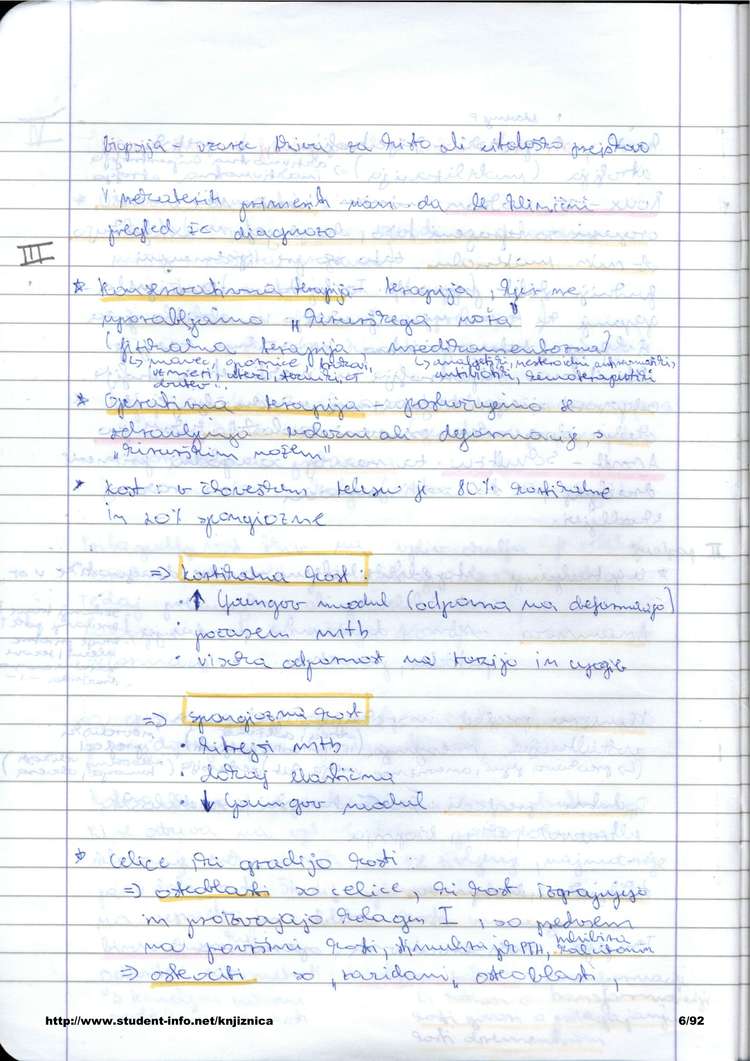 biopsija - vzorec tkiva za histo ali citološko preiskavo
V nekaterih primerih nam da že klinični
pregled
diagnozo
III
* Konzervativna terapija - terapija, kjer ne
uporabljamo "kirurškega noža"
(fizikalna terapija, medikamentozna)
↳ mavec, opornice,
↳ analgetiki, nesteroidni antirevmatiki,
antibiotiki, kemoterapevtiki
* Operativna terapija - poskušamo
zdravljenja bolezni ali deformacij s
"kirurškim nožem"
* Kost: v človeškem telesu je 80% kortikalne
in 20% spongiozne
=> kortikalna kost:
• ↑ Youngov modul (odporna na deformacijo)
• počasen mtb
• visoka odpornost na torzijo in upogib
=> spongiozna kost
• hitrejši mtb
• dokaj elastična
• ↓ Youngov modul
* Celice ki gradijo kosti:
=> osteoblasti so celice, ki kost izgrajujejo
in proizvajajo kolagen I, so predvsem
na površini kosti, stimulira jih PTH, inhibira kalcitonin
=> osteociti so "zazidani" osteoblasti,
http://www.student-info.net/knjiznica
6/92